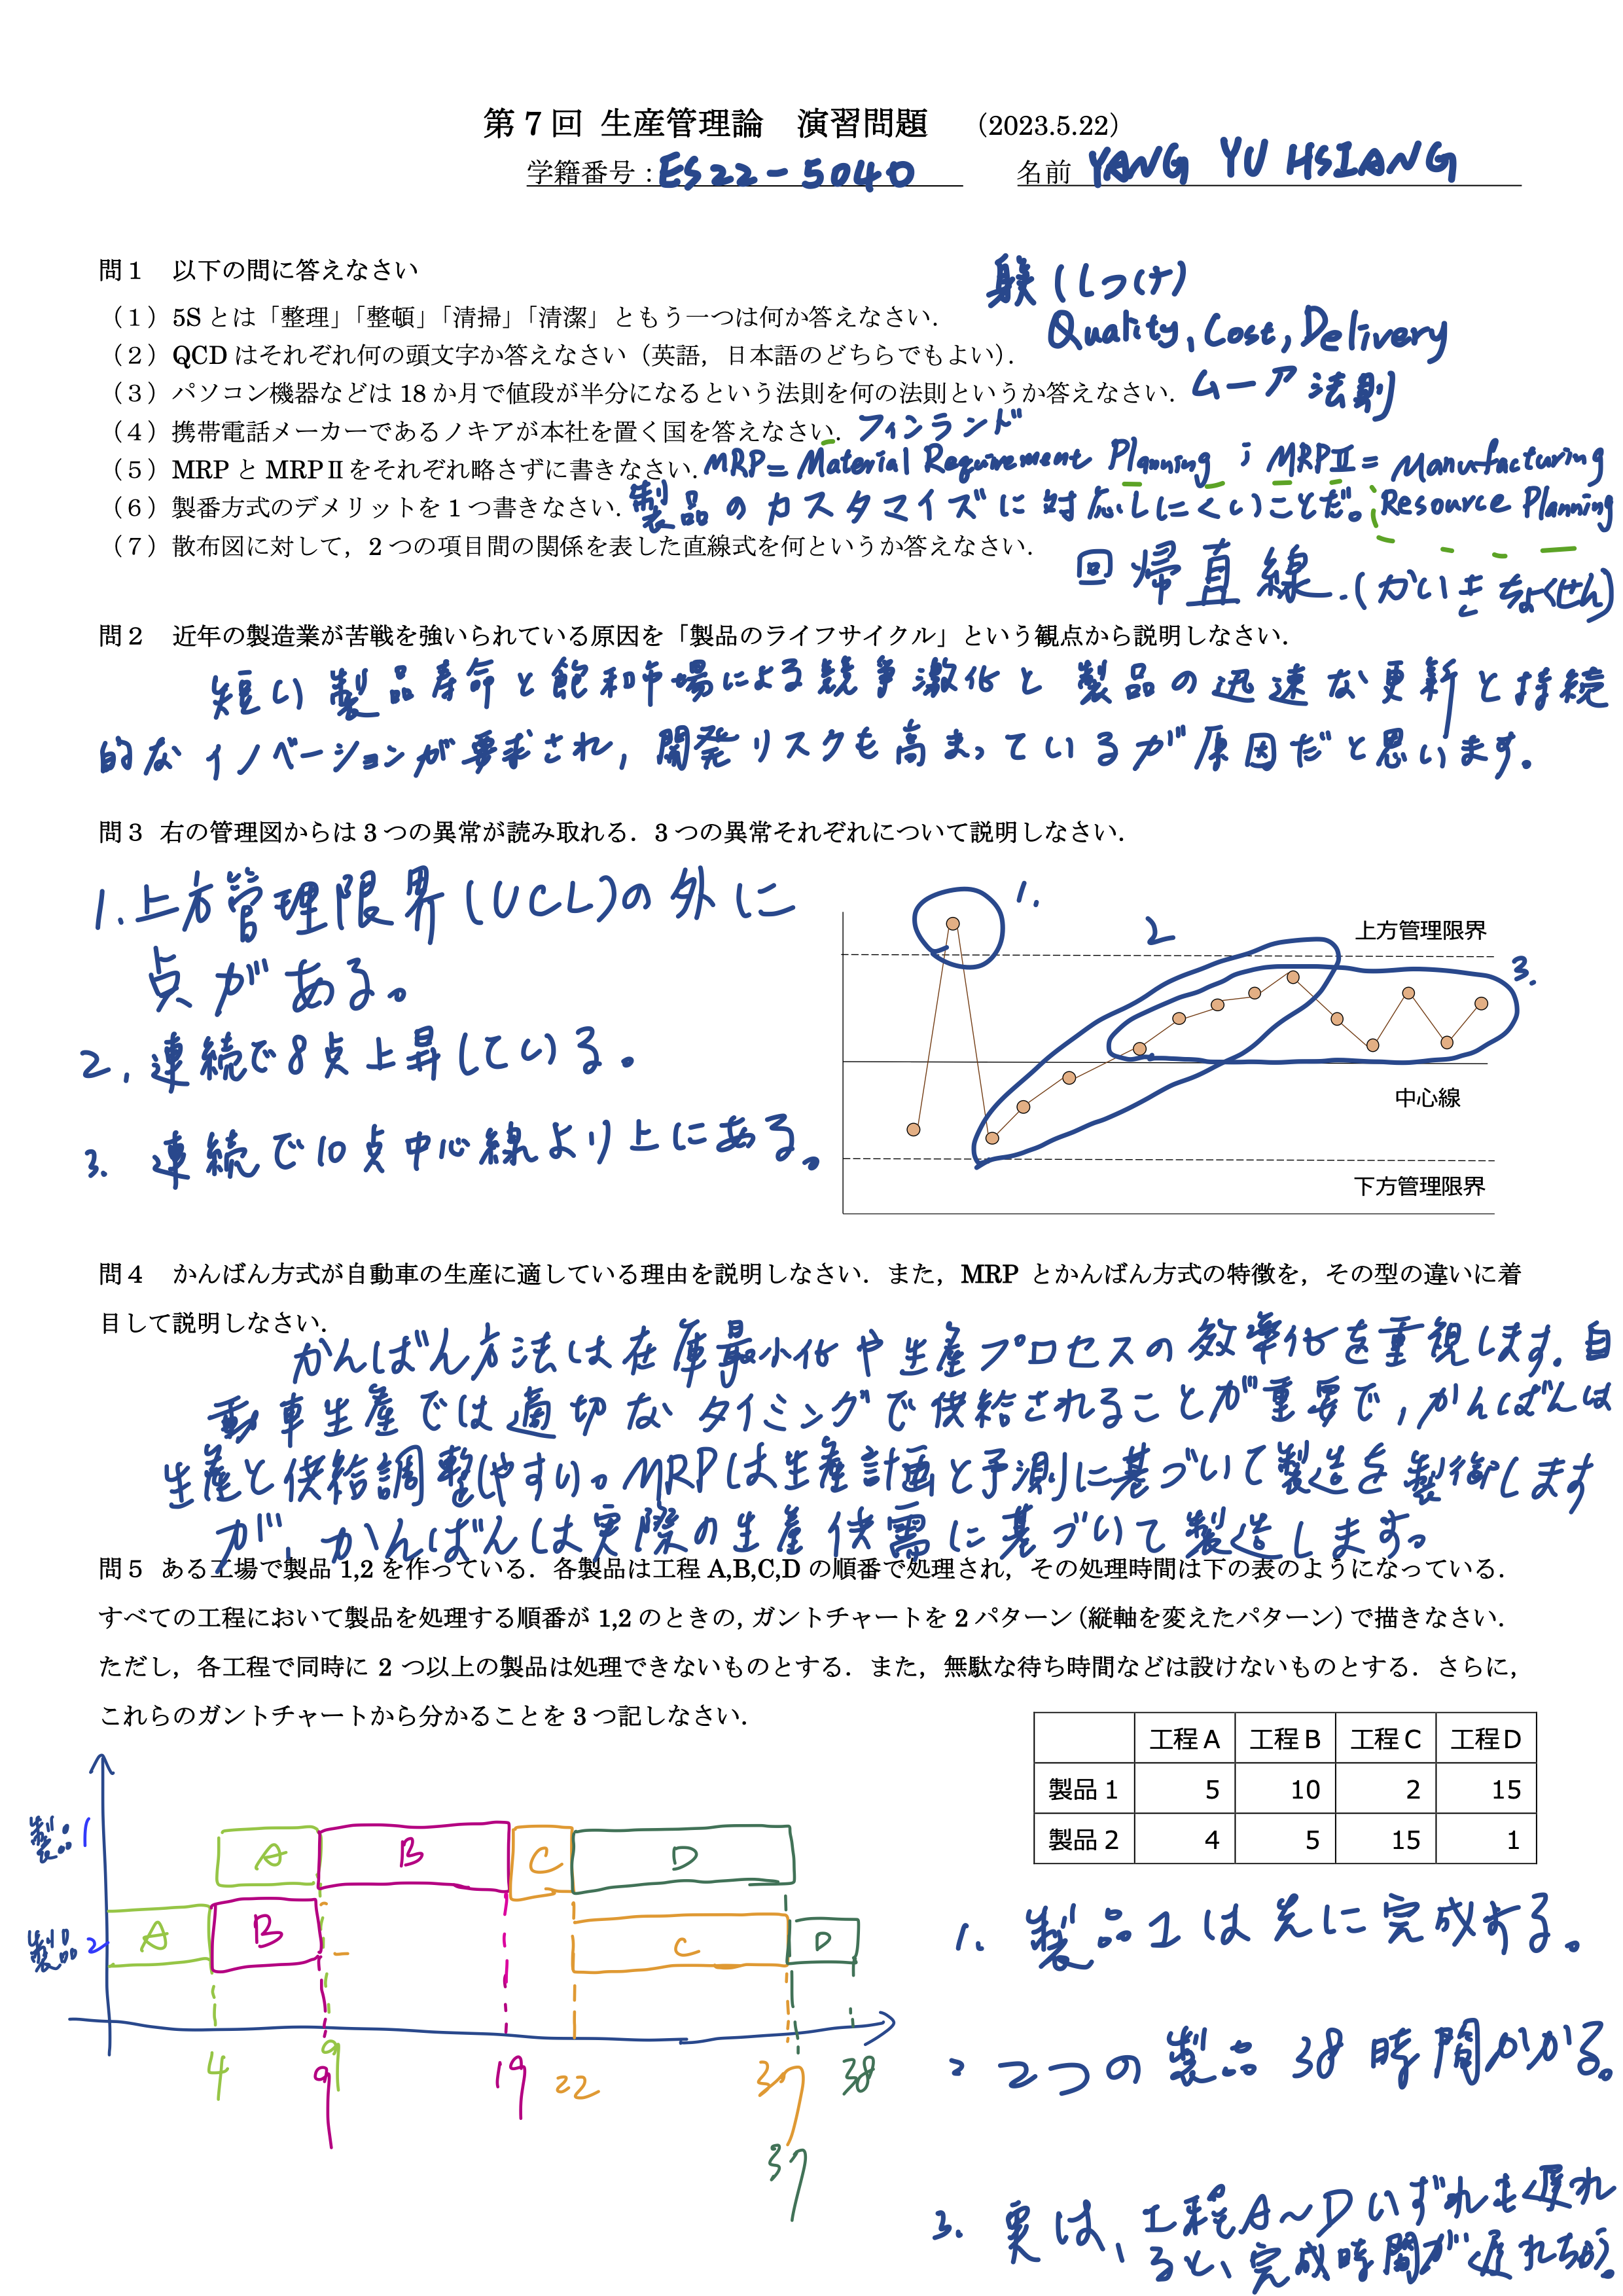 第7回 生産管理論 演習問題 （2023.5.22）
学籍番号：ES22-5040 名前 YANG YU HSIANG
問1 以下の問に答えなさい
（1）5Sとは「整理」「整頓」「清掃」「清潔」ともう一つは何か答えなさい． 躾（しつけ）
（2）QCDはそれぞれ何の頭文字か答えなさい（英語，日本語のどちらでもよい）． Quality, Cost, Delivery
（3）パソコン機器などは18か月で値段が半分になるという法則を何の法則というか答えなさい． ムーア法則
（4）携帯電話メーカーであるノキアが本社を置く国を答えなさい． フィンランド
（5）MRPとMRPⅡをそれぞれ略さずに書きなさい． MRP= Material Requirement Planning ; MRPⅡ= Manufacturing
Resource Planning
（6）製番方式のデメリットを1つ書きなさい． 製品のカスタマイズに対応しにくいことだ。
（7）散布図に対して，2つの項目間の関係を表した直線式を何というか答えなさい． 回帰直線.(かいきちょくせん)
問2 近年の製造業が苦戦を強いられている原因を「製品のライフサイクル」という観点から説明しなさい．
短い製品寿命と飽和市場による競争激化と製品の迅速な更新と持続
的なイノベーションが要求され, 開発リスクも高まっているが原因だと思います.
問3 右の管理図からは3つの異常が読み取れる．3つの異常それぞれについて説明しなさい．
1. 上方管理限界(UCL)の外に
点がある。
2. 連続で8点上昇している。
3. 連続で10点中心線より上にある。
1.
2
3.
上方管理限界
中心線
下方管理限界
問4 かんばん方式が自動車の生産に適している理由を説明しなさい．また，MRPとかんばん方式の特徴を，その型の違いに着
目して説明しなさい．
かんばん方法は在庫最小化や生産プロセスの効率化を重視します. 自
動車生産では適切なタイミングで供給されることが重要で, かんばんは
生産と供給調整しやすい。MRPは生産計画と予測に基づいて製造を製御します
が、かんばんは実際の生産供需に基づいて製造します。
問5 ある工場で製品1,2を作っている．各製品は工程A,B,C,Dの順番で処理され，その処理時間は下の表のようになっている．
すべての工程において製品を処理する順番が1,2のときの，ガントチャートを2パターン（縦軸を変えたパターン）で描きなさい．
ただし，各工程で同時に2つ以上の製品は処理できないものとする．また，無駄な待ち時間などは設けないものとする．さらに，
これらのガントチャートから分かることを3つ記しなさい．
工程A 工程B 工程C 工程D
製品1 5 10 2 15
製品2 4 5 15 1
製品1 A B C D
製品2 A B C D
4 9 9 19 22 37 38
37
1. 製品1は先に完成する。
2 2つの製品38時間かかる。
3. 実は、工程A～Dいずれも遅れ
ると、完成時間が遅れちゃう.